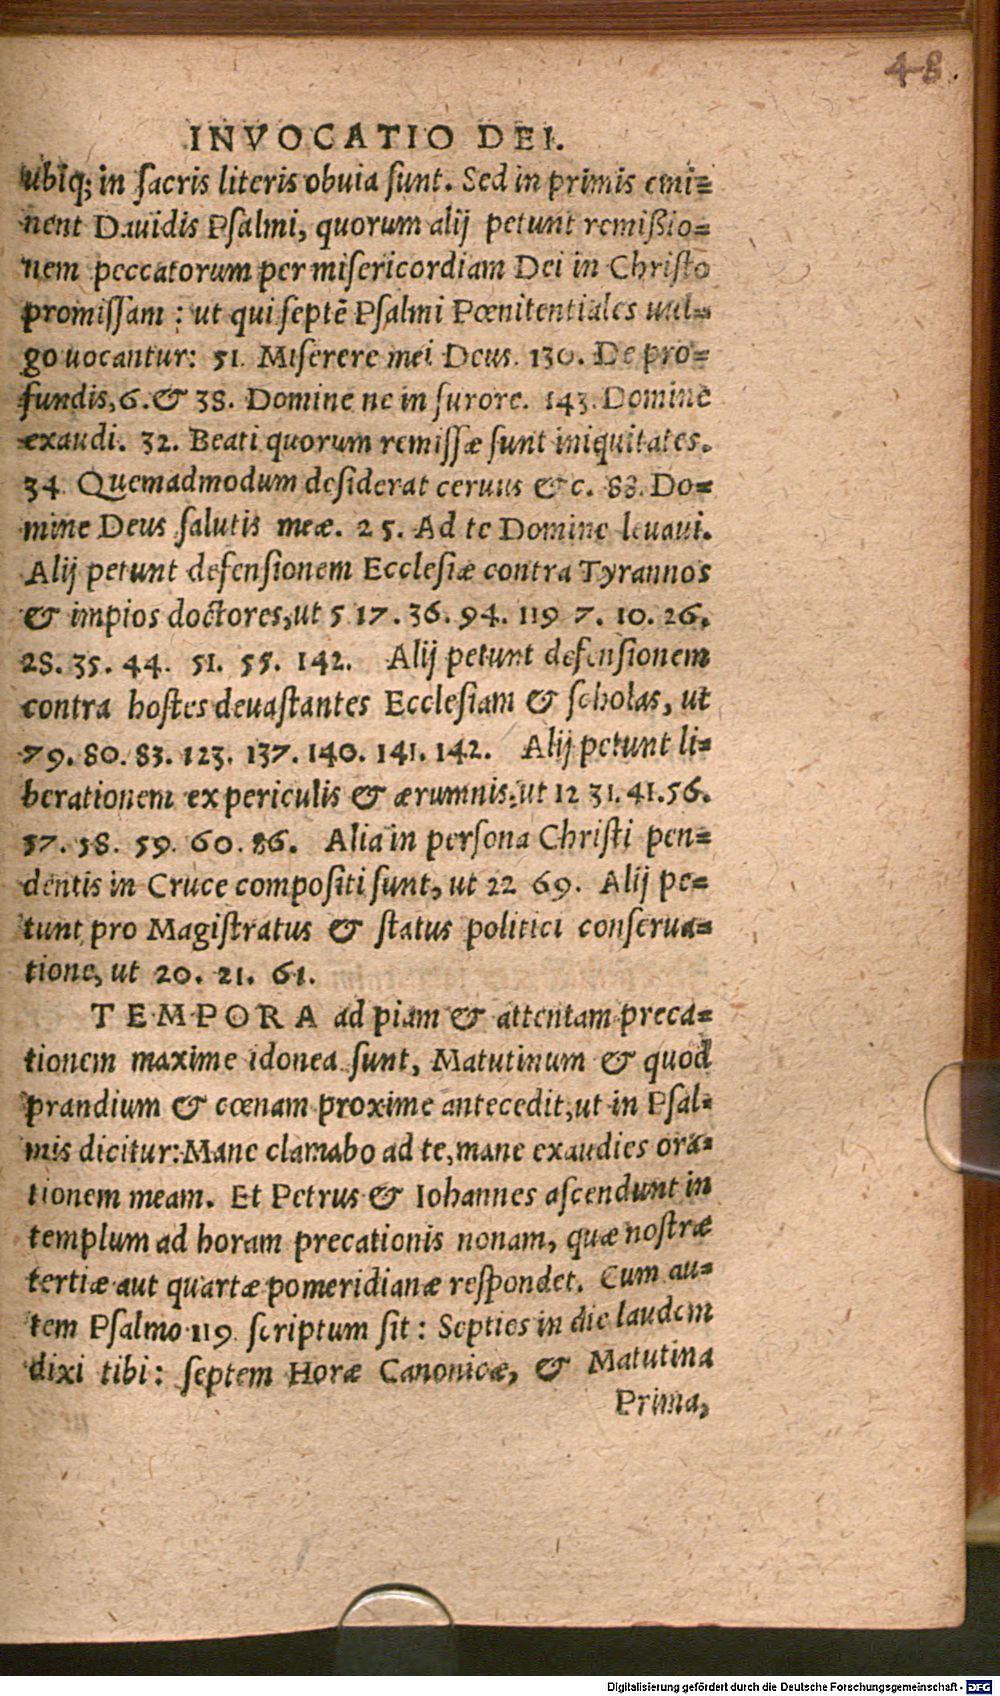 48.
INVOCATIO DEI.
ubiq; in sacris literis obuia sunt. Sed in primis emi=
nent Dauidis Psalmi, quorum alij petunt remißio=
nem peccatorum per misericordiam Dei in Christo
promissam : ut qui septē Psalmi Pœnitentiales uul=
go uocantur: 51. Miserere mei Deus. 130. De pro=
fundis, 6. & 38. Domine ne in furore. 143. Domine
exaudi. 32. Beati quorum remissæ sunt iniquitates.
34. Quemadmodum desiderat ceruus &c. 88. Do=
mine Deus salutis meæ. 25. Ad te Domine leuaui.
Alij petunt defensionem Ecclesiæ contra Tyrannos
& impios doctores, ut 5 17. 36. 94. 119 7. 10. 26.
28. 35. 44. 51. 55. 142. Alij petunt defensionem
contra hostes deuastantes Ecclesiam & scholas, ut
79. 80. 83. 123. 137. 140. 141. 142. Alij petunt li=
berationem ex periculis & ærumnis: ut 12 31. 41. 56.
57. 58. 59. 60. 86. Alia in persona Christi pen=
dentis in Cruce compositi sunt, ut 22 69. Alij pe=
tunt pro Magistratus & status politici conserua=
tione, ut 20. 21. 61.
TEMPORA ad piam & attentam preca=
tionem maxime idonea sunt, Matutinum & quod
prandium & cœnam proxime antecedit, ut in Psal=
mis dicitur: Mane clamabo ad te, mane exaudies ora=
tionem meam. Et Petrus & Iohannes ascendunt in
templum ad horam precationis nonam, quæ nostræ
tertiæ aut quartæ pomeridianæ respondet. Cum au=
tem Psalmo 119 scriptum sit : Septies in die laudem
dixi tibi : septem Horæ Canonicæ, & Matutina
Prima,
Digitalisierung gefördert durch die Deutsche Forschungsgemeinschaft - DFG